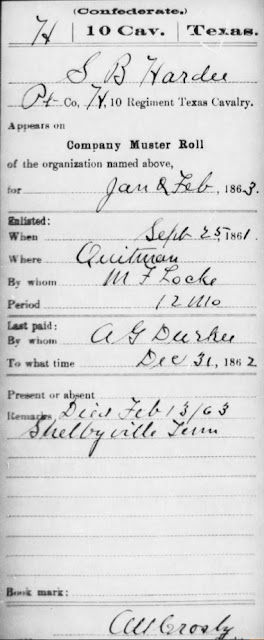 (Confederate.)
H | 10 Cav. | Texas.
S B Hardee
Pt Co, H, 10 Regiment Texas Cavalry.
Appears on
Company Muster Roll
of the organization named above,
for Jan & Feb, 1863.
Enlisted:
When Sept 25, 1861.
Where Quitman
By whom M F Locke
Period 12 Mo
Last paid:
By whom A G Durkee
To what time Dec 31, 1862
Present or absent
Remarks Died Feb 13/63
Shelbyville Tenn
Book mark:
Crosby